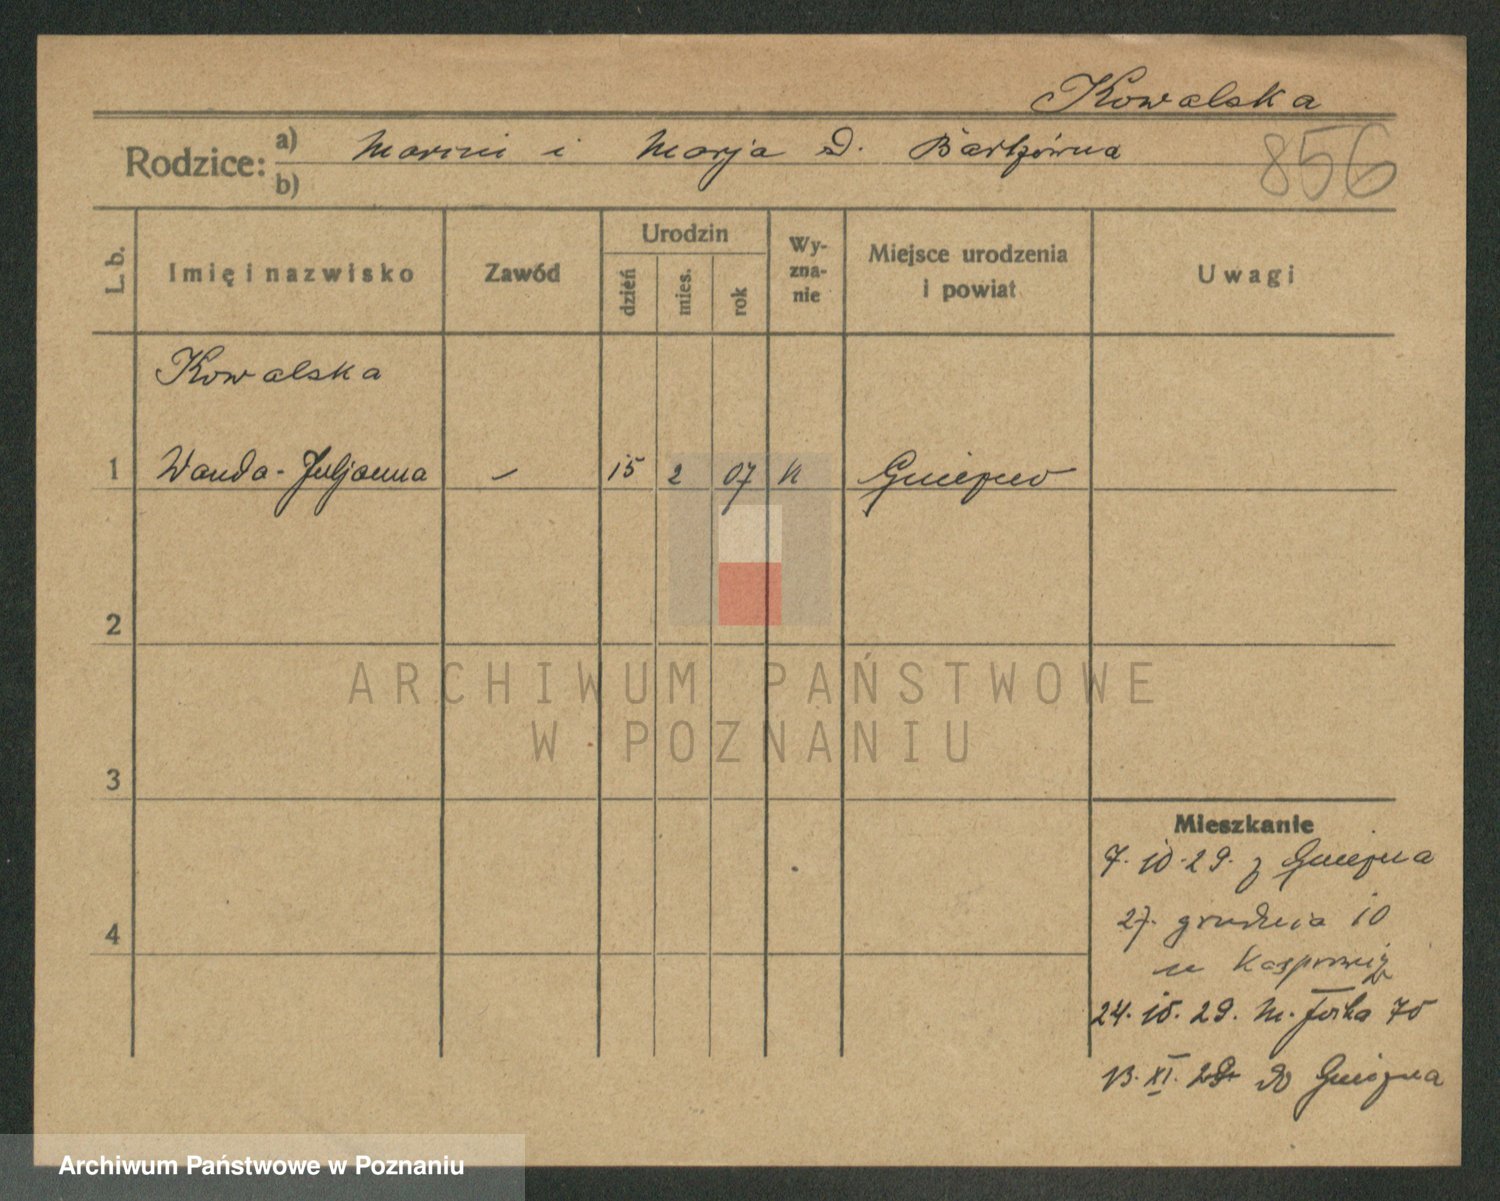 Kowalska
Rodzice: a) Marcin i Marja d. Bartzówna
b)
856
L. b.
Imię i nazwisko
Zawód
Urodzin
dzień
mies.
rok
Wy-
zna-
nie
Miejsce urodzenia
i powiat
Uwagi
Kowalska
1 Wanda-Juljanna – 15 2 07 k Gniezno
2
3
4
Mieszkanie
7.10.29. z Gniezna
27. grudnia 10
u
24.10.29. M. Focha 75
13.XI.29 do Gniezna
ARCHIWUM PAŃSTWOWE
W POZNANIU
Archiwum Państwowe w Poznaniu